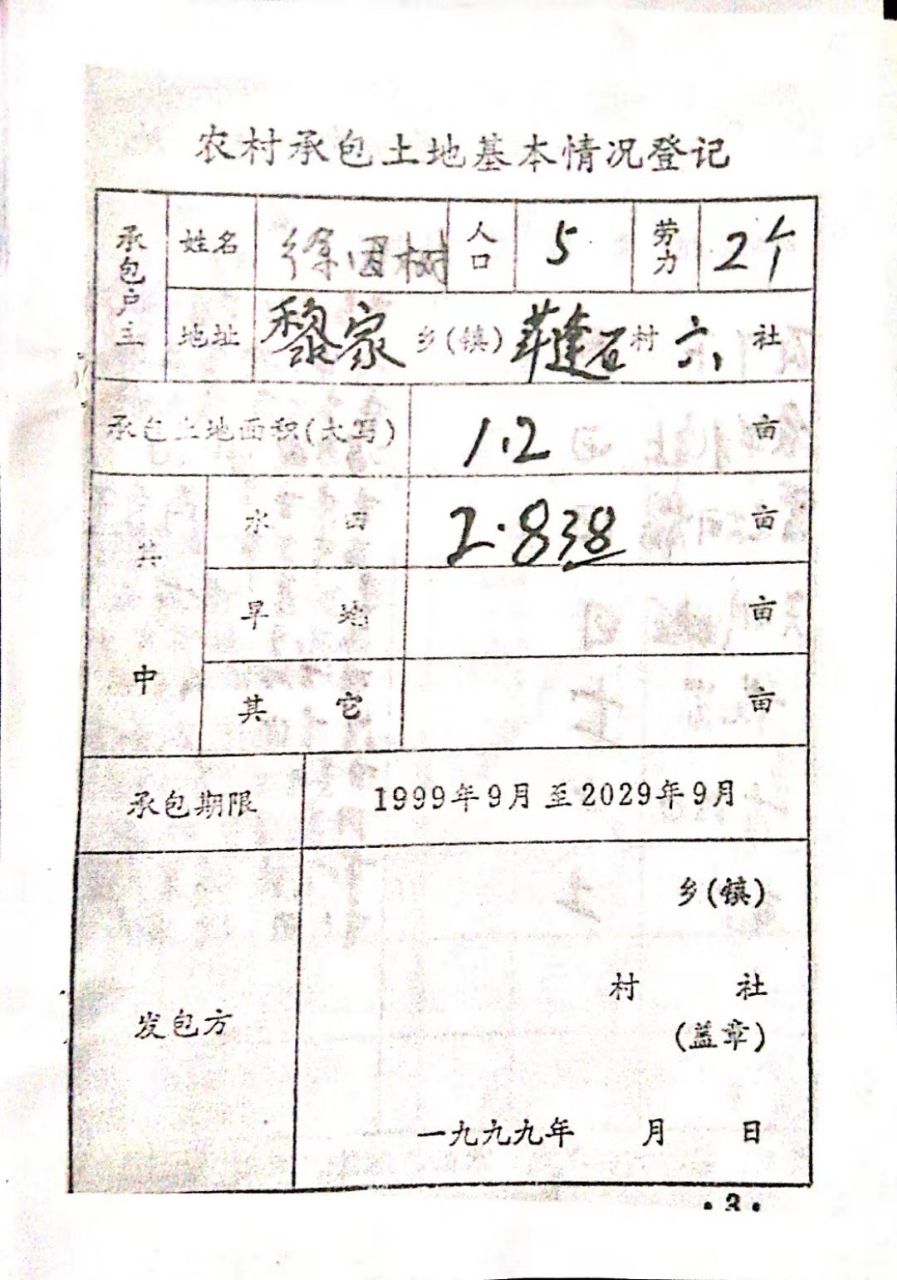 农村承包土地基本情况登记
承包户主 姓名 徐国树 人口 5 劳力 2个
地址 黎家 乡(镇) 石村 六 社
承包土地面积(大写) 1.2 亩
其中 水田 2.838 亩
旱地 亩
其它 亩
承包期限 1999年9月至2029年9月
发包方 乡(镇)
村 社
(盖章)
一九九九年 月 日
·3·